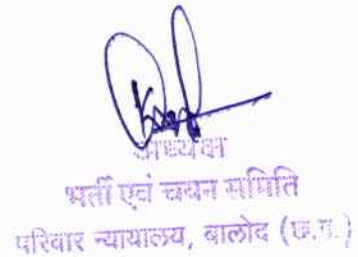 अध्यक्ष
भर्ती एवं चयन समिति
परिवार न्यायालय, बालोद (छ.ग.)